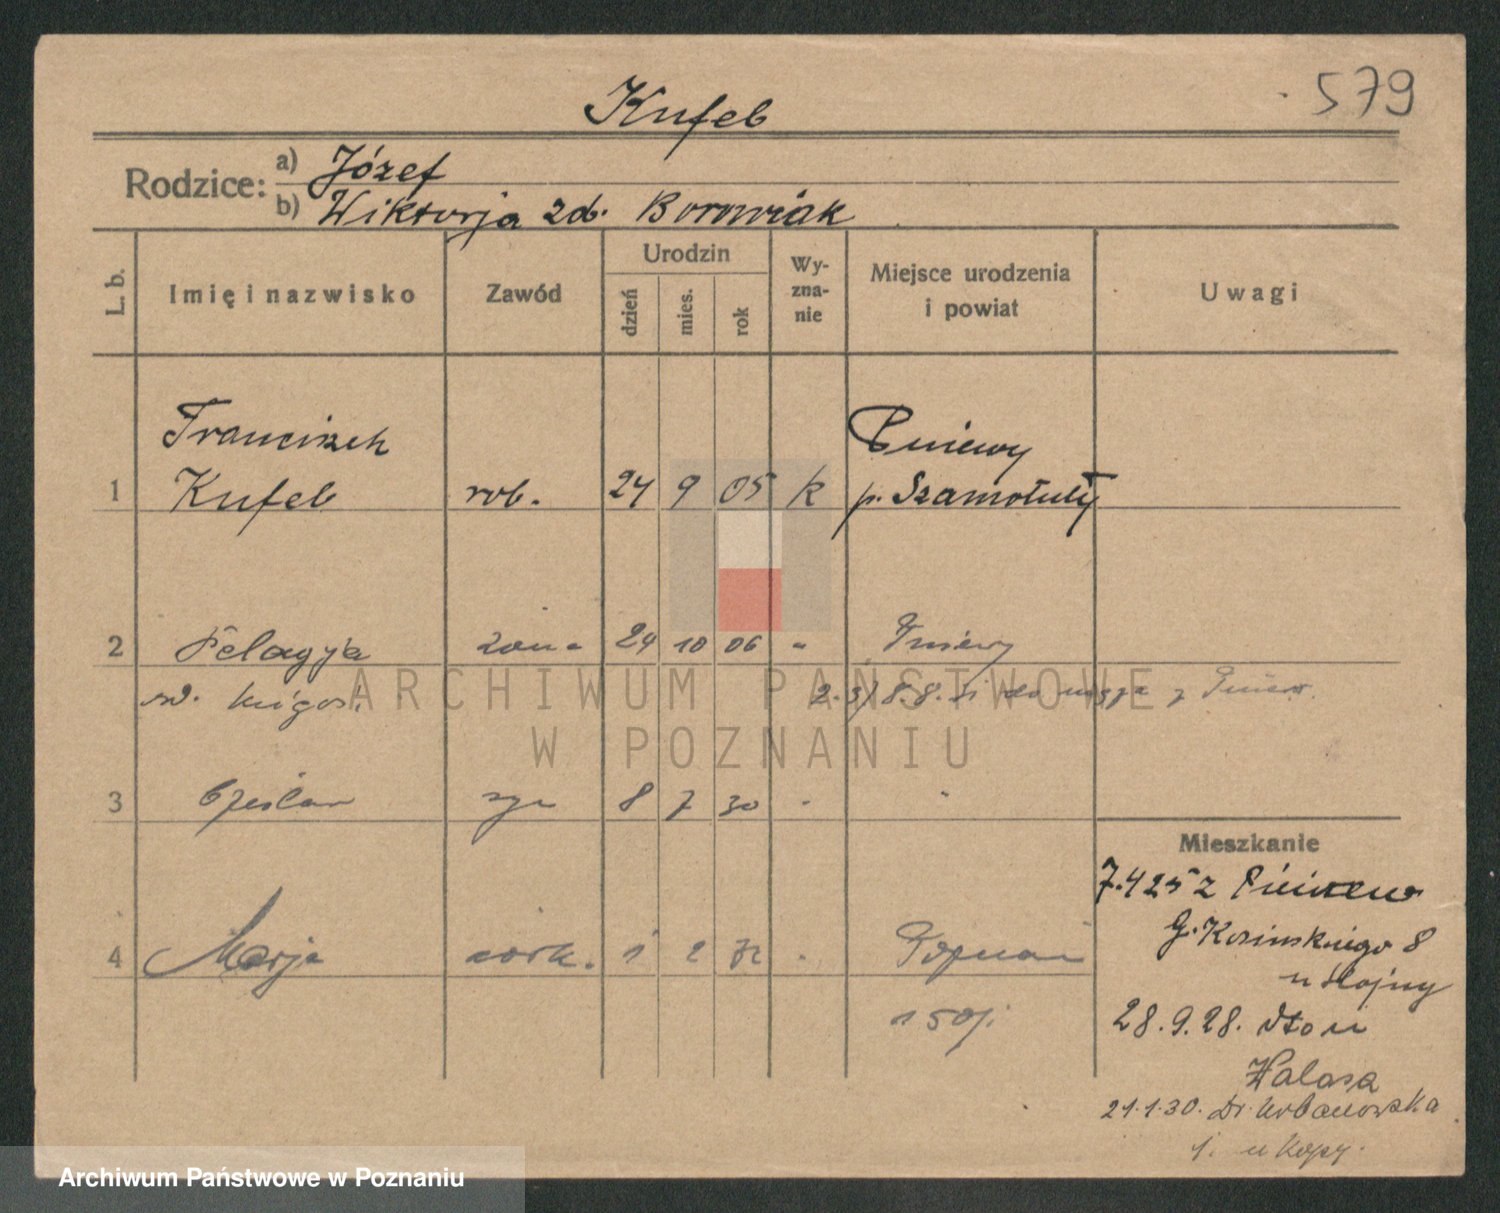 579
Kufeb
Rodzice: a) Józef
b) Wiktorja zd. Borowiak
L. b.
Imię i nazwisko
Zawód
Urodzin
dzień
mies.
rok
Wy-
zna-
nie
Miejsce urodzenia
i powiat
Uwagi
Franciszek
1 Kufeb rob. 24 9 05 k
Pniewy
p. Szamotuły
2 Pelagja żon. 24 10 06 " Pniewy
2. 3) 8.8. do męża z Pniew.
3 Czesław syn 8 7 30 " "
4 Marja córk. 1 2 32 " Poznań
Mieszkanie
7.4 25 z
G. Kosinskiego 8
u
28.9.28. dto u
Walasa
21.1.30. Dr. Urbanowska
1. u Kopy.
ARCHIWUM PAŃSTWOWE
W POZNANIU
Archiwum Państwowe w Poznaniu